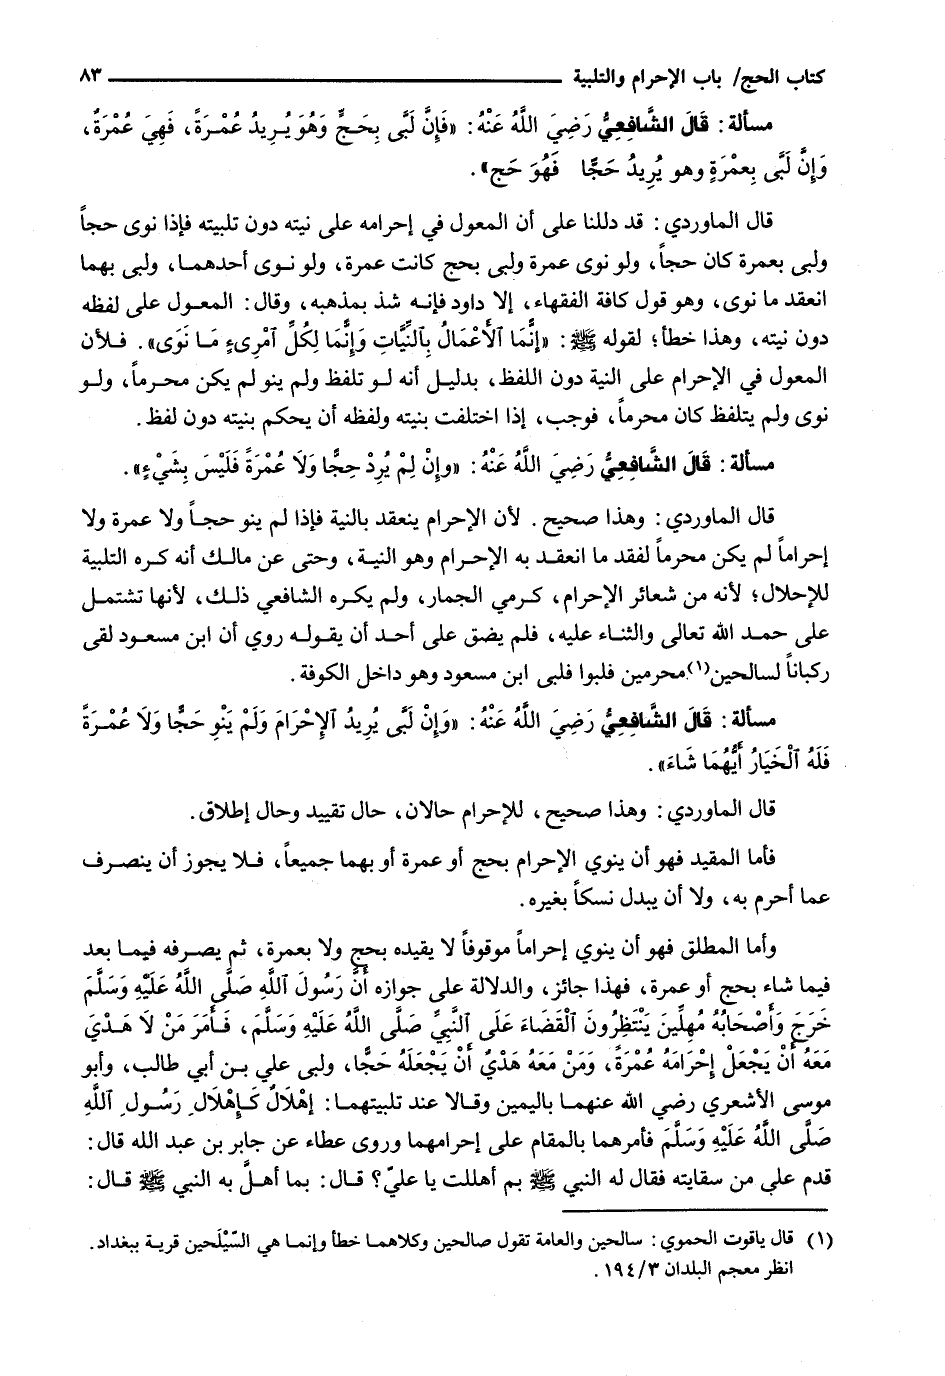 كتاب الحج/ باب الإحرام والتلبية ٨٣
مسألة: قَالَ الشَّافِعِيُّ رَضِيَ اللَّهُ عَنْهُ: «فَإِنَّ لَبَّى بِحَجٍّ وَهُوَ يُرِيدُ عُمْرَةً، فَهِيَ عُمْرَةٌ،
وَإِنَّ لَبَّى بِعمْرَةٍ وهو يُرِيدُ حَجًّا فَهُوَ حَج».
قال الماوردي: قد دللنا على أن المعول في إحرامه على نيته دون تلبيته فإذا نوى حجاً
ولبى بعمرة كان حجاً، ولو نوى عمرة ولبى بحج كانت عمرة، ولو نوى أحدهما، ولبى بهما
انعقد ما نوى، وهو قول كافة الفقهاء، إلا داود فإنه شذ بمذهبه، وقال: المعول على لفظه
دون نيته، وهذا خطأ؛ لقوله ﷺ: «إِنَّمَا الْأَعْمَالُ بِالنِّيَّاتِ وَإِنَّمَا لِكُلِّ آمْرِىءٍ مَا نَوَى». فلأن
المعول في الإحرام على النية دون اللفظ، بدليل أنه لو تلفظ ولم ينو لم يكن محرماً، ولو
نوى ولم يتلفظ كان محرماً، فوجب، إذا اختلفت بنيته ولفظه أن يحكم بنيته دون لفظ.
مسألة: قَالَ الشَّافِعِيُّ رَضِيَ اللَّهُ عَنْهُ: «وإِنْ لِمْ يُرِدْ حِجًّا وَلَا عُمْرَةً فَلَيْسَ بِشَيْءٍ».
قال الماوردي: وهذا صحيح. لأن الإحرام ينعقد بالنية فإذا لم ينو حجاً ولا عمرة ولا
إحراماً لم يكن محرماً لفقد ما انعقد به الإحرام وهو النية، وحتى عن مالك أنه كره التلبية
للإحلال؛ لأنه من شعائر الإحرام، كرمي الجمار، ولم يكره الشافعي ذلك، لأنها تشتمل
على حمد الله تعالى والثناء عليه، فلم يضق على أحد أن يقوله روي أن ابن مسعود لقى
ركباناً لسالحين(١) محرمين فلبوا فلبى ابن مسعود وهو داخل الكوفة.
مسألة: قَالَ الشَّافِعِيُّ رَضِيَ اللَّهُ عَنْهُ: «وَإِنْ لَبَّى يُرِيدُ الإِحْرَامَ وَلَمْ يَنْوِ حَجًّا وَلَا عُمْرَةً
فَلَهُ الْخَيَارُ أَيُّهُمَا شَاءَ».
قال الماوردي: وهذا صحيح، للإحرام حالان، حال تقييد وحال إطلاق.
فأما المقيد فهو أن ينوي الإحرام بحج أو عمرة أو بهما جميعاً، فلا يجوز أن ينصرف
عما أحرم به، ولا أن يبدل نسكاً بغيره.
وأما المطلق فهو أن ينوي إحراماً موقوفاً لا يقيده بحج ولا بعمرة، ثم يصرفه فيما بعد
فيما شاء بحج أو عمرة، فهذا جائز، والدلالة على جوازه أَنَّ رَسُولَ اللَّهِ صَلَّى اللَّهُ عَلَيْهِ وَسَلَّمَ
خَرَجَ وَأَصْحَابُهُ مُهِلِّينَ يَنْتَظِرُونَ الْقَضَاءَ عَلَى النَّبِيِّ صَلَّى اللَّهُ عَلَيْهِ وَسَلَّمَ، فَأَمَرَ مَنْ لَا هَدْيَ
مَعَهُ أَنْ يَجْعَلْ إِحْرَامَهُ عُمْرَةً، وَمَنْ مَعَهُ هَدْيٌ أَنْ يَجْعَلَهُ حَجًّا، ولبى علي بن أبي طالب، وأبو
موسى الأشعري رضي الله عنهما باليمين وقالا عند تلبيتهما: إهْلَالٌ كَإِهْلَالِ رَسُولِ اللَّهِ
صَلَّى اللَّهُ عَلَيْهِ وَسَلَّمَ فأمرهما بالمقام على إحرامهما وروى عطاء عن جابر بن عبد الله قال:
قدم علي من سقايته فقال له النبي ﷺ بم أهللت يا عليّ؟ قال: بما أهلَّ به النبي ﷺ قال:
(١) قال ياقوت الحموي: سالحين والعامة تقول صالحين وكلاهما خطأ وإنما هي السّيْلَحين قرية ببغداد.
انظر معجم البلدان ١٩٤/٣.